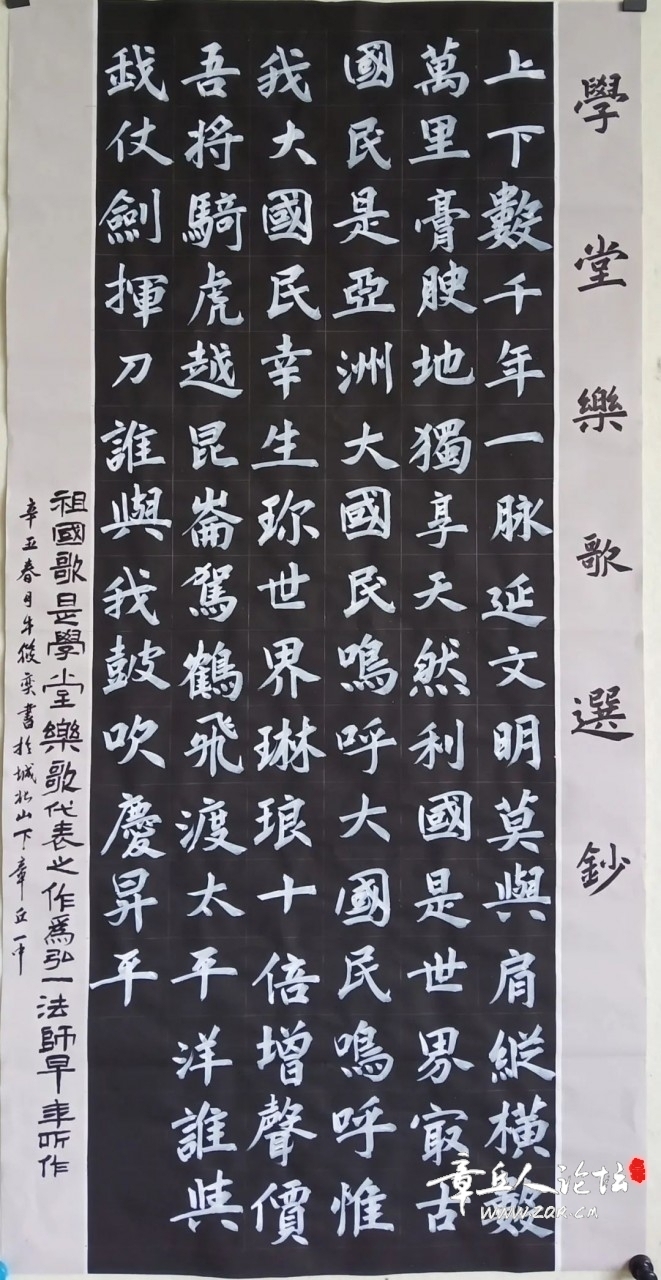 學堂樂歌選鈔
上下數千年一脉延文明莫與肩縱橫數
萬里膏腴地獨享天然利國是世界最古
國民是亞洲大國民嗚呼大國民嗚呼惟
我大國民幸生珎世界琳琅十倍增聲價
吾將騎虎越昆崙駕鶴飛渡太平洋誰與
我仗劍揮刀誰與我鼓吹慶昇平
祖國歌是學堂樂歌代表之作爲弘一法師早年所作
辛丑春月牛俊奕書於城松山下章丘一中
章丘人论坛
www.zqr.cn